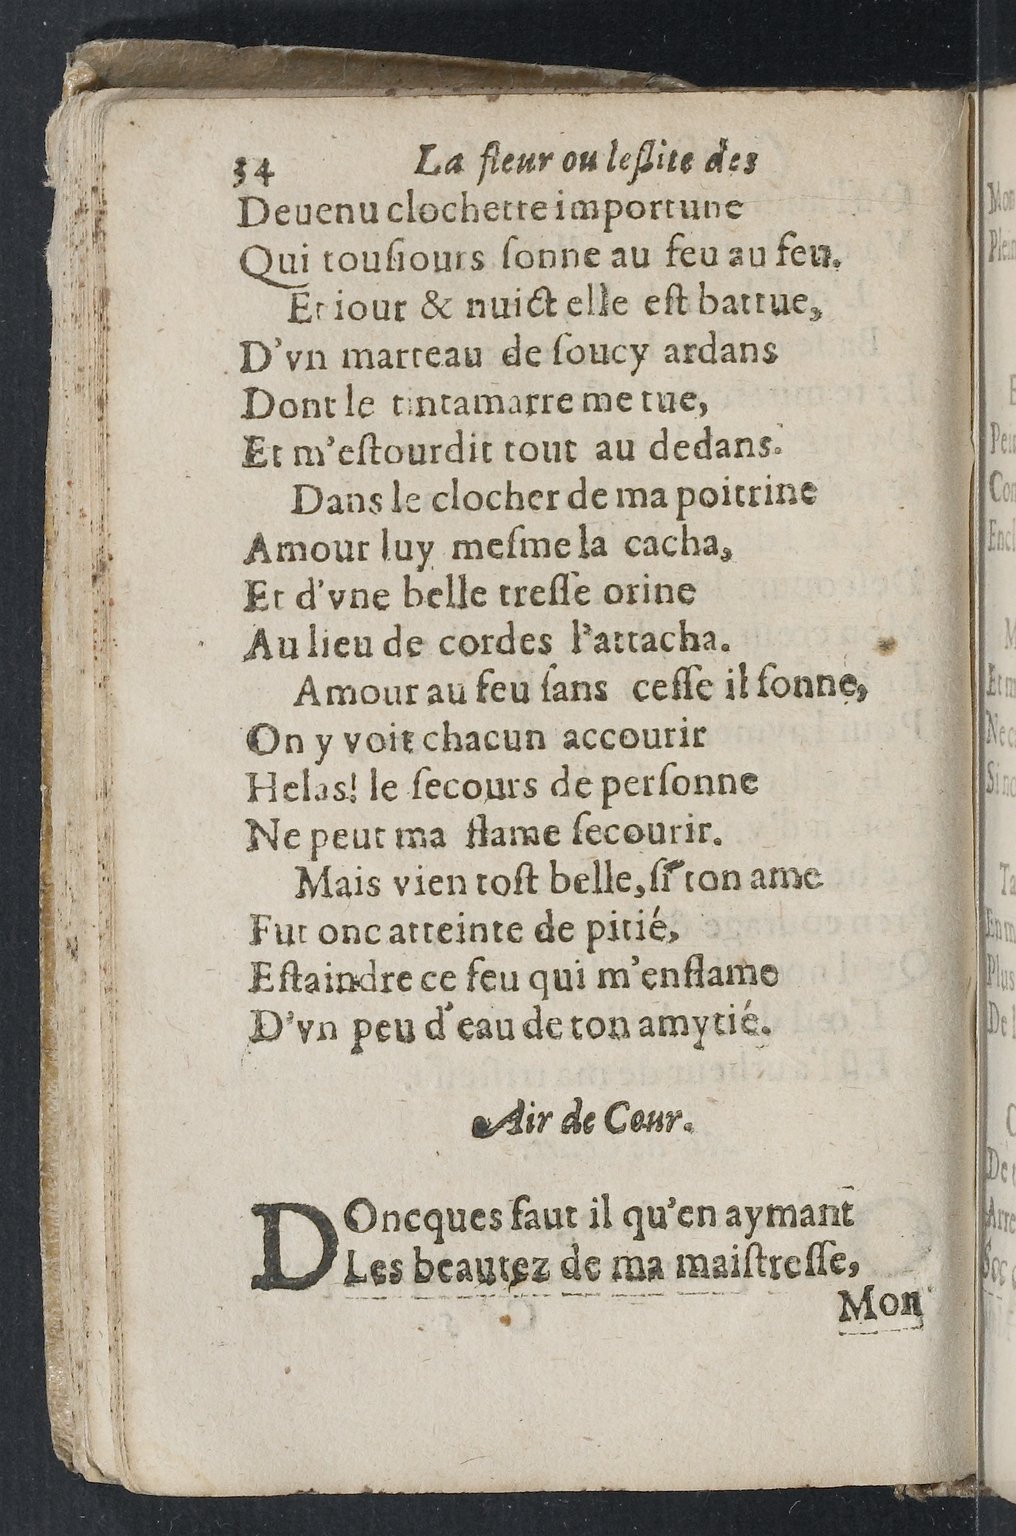 34 La fleur ou leslite des
Deuenu clochette importune
Qui tousiours sonne au feu au feu.
Et iour & nuict elle est battue,
D'vn marteau de soucy ardans
Dont le tintamarre me tue,
Et m'estourdit tout au dedans.
Dans le clocher de ma poitrine
Amour luy mesme la cacha,
Et d'vne belle tresse orine
Au lieu de cordes l'attacha.
Amour au feu sans cesse il sonne,
On y voit chacun accourir
Helas! le secours de personne
Ne peut ma flame secourir.
Mais vien tost belle, si ton ame
Fut onc atteinte de pitié,
Estaindre ce feu qui m'enflame
D'vn peu d'eau de ton amytié.
Air de Cour.
DOncques faut il qu'en aymant
Les beautez de ma maistresse,
Mon